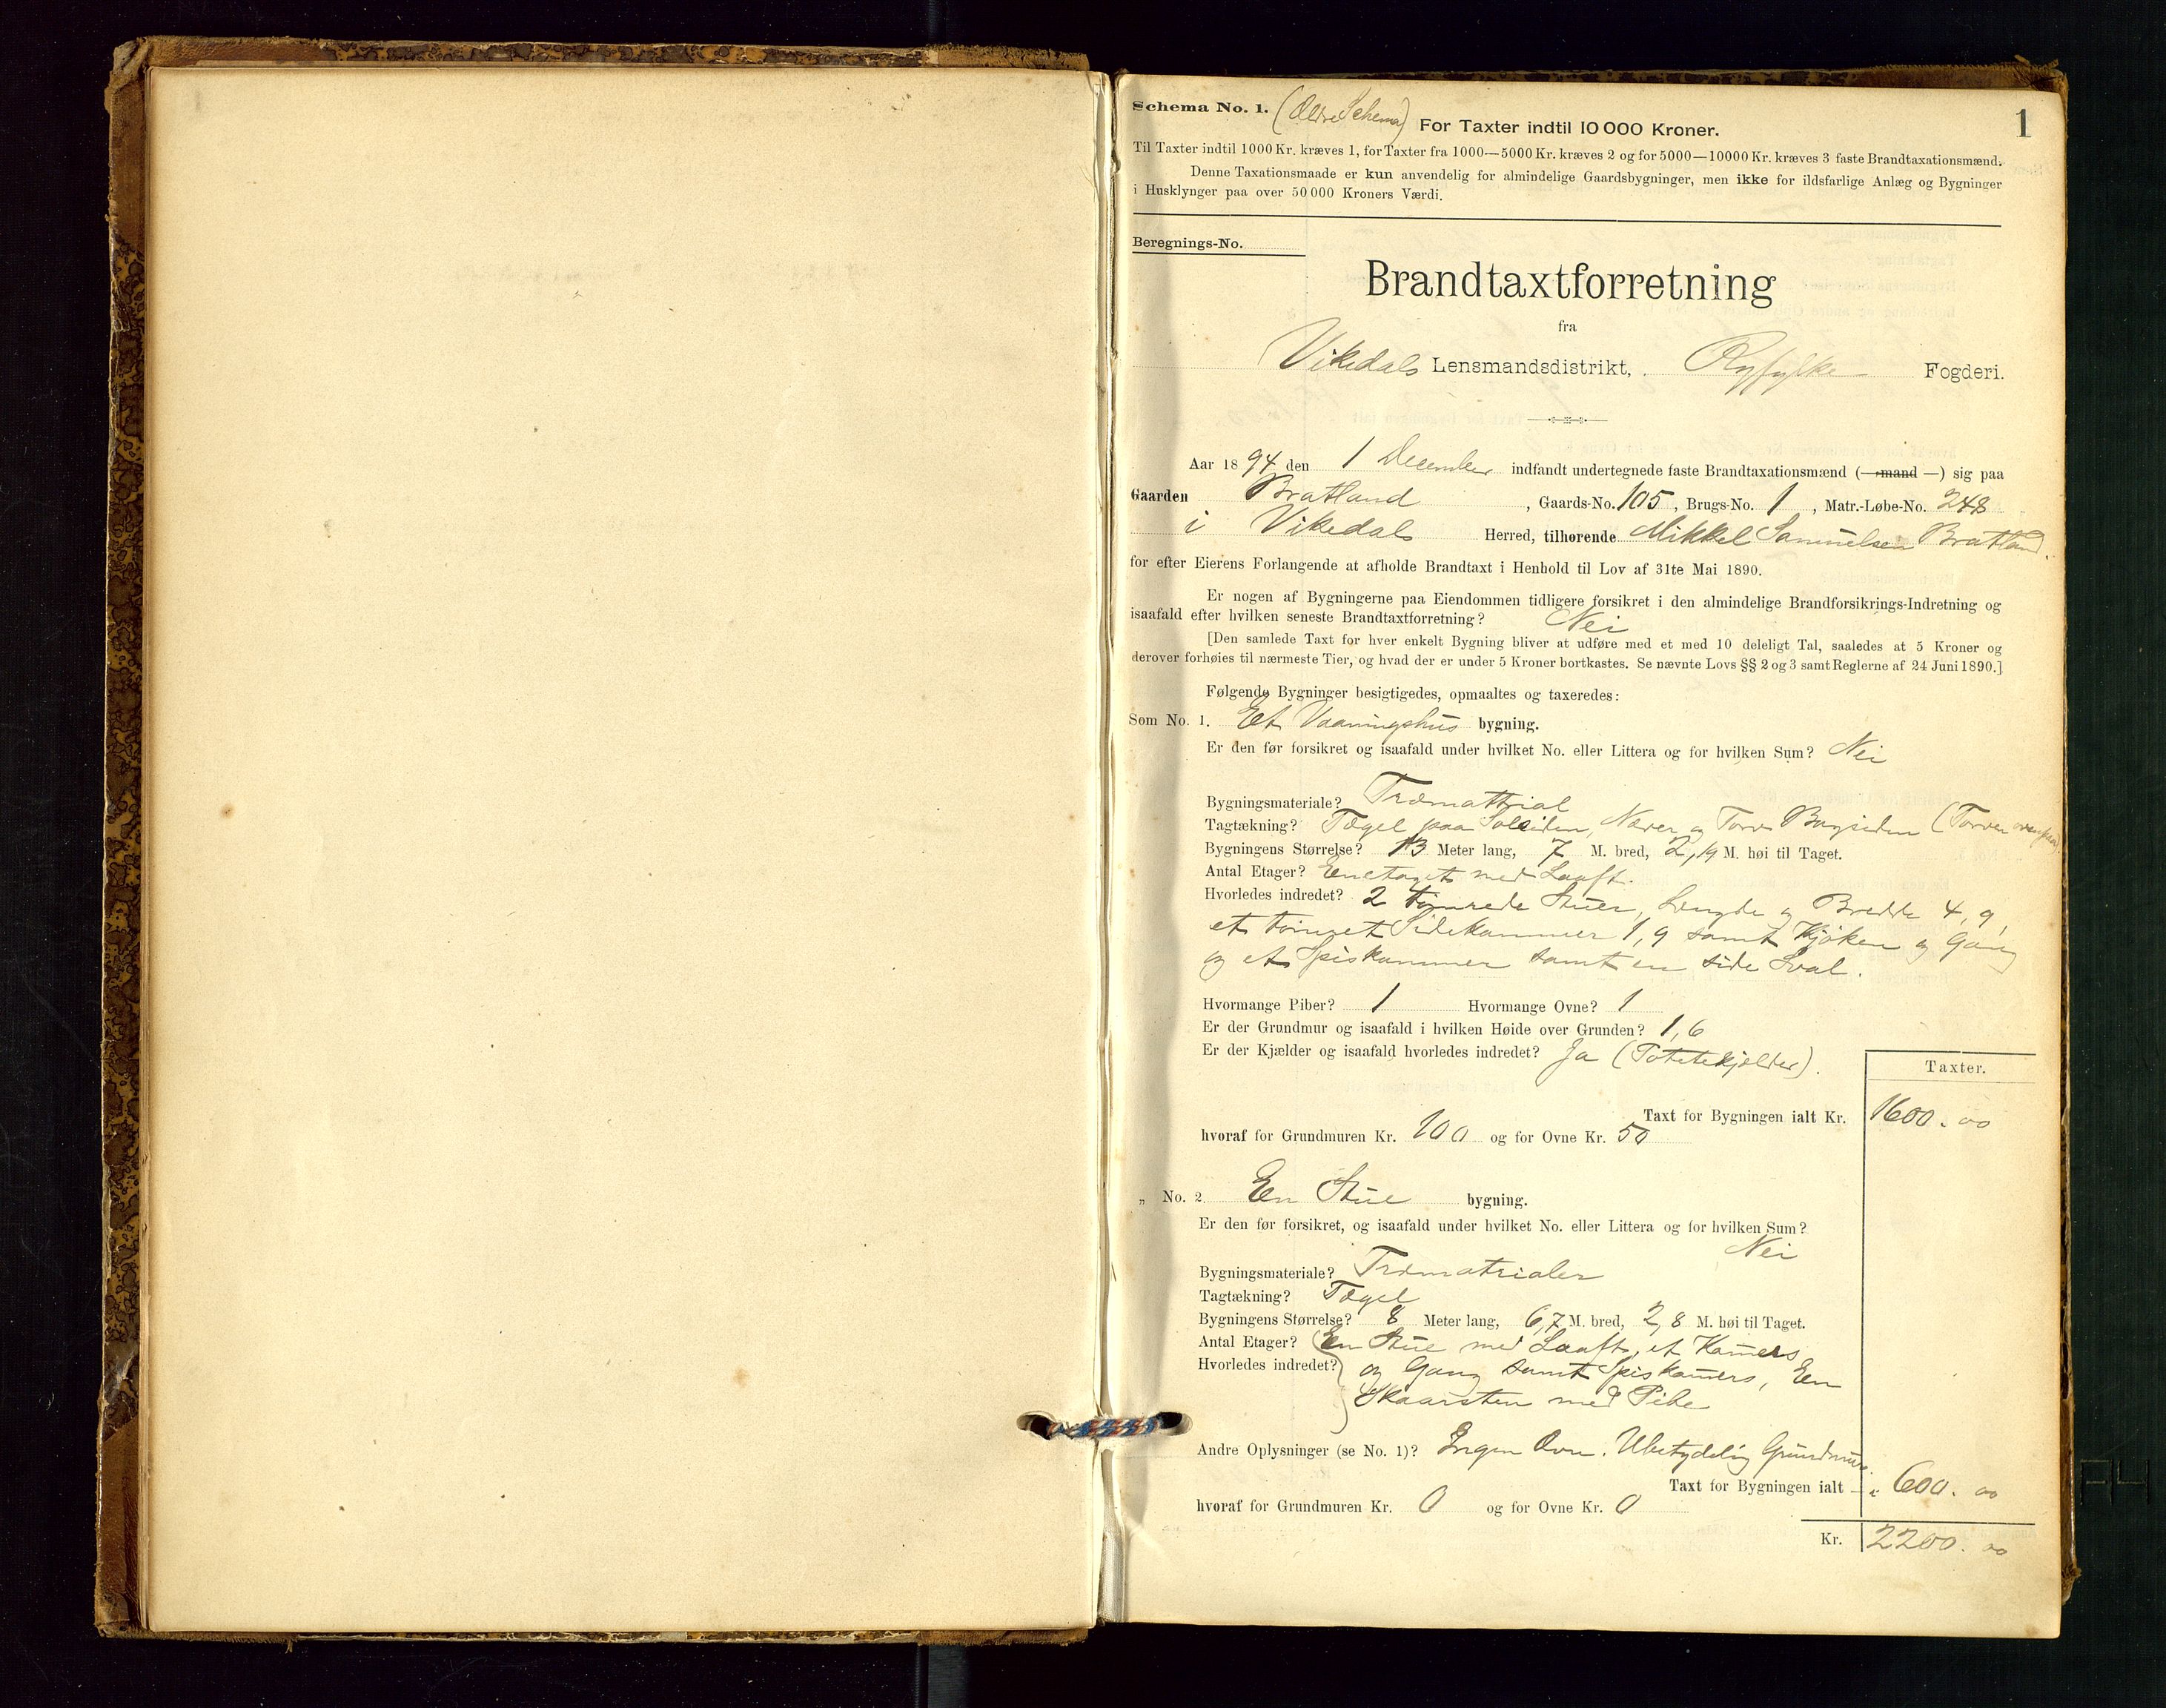 1
Schema No. 1. (Ældre Schema) For Taxter indtil 10 000 Kroner.
Til Taxter indtil 1000 Kr. kræves 1, for Taxter fra 1000—5000 Kr. kræves 2 og for 5000—10000 Kr. kræves 3 faste Brandtaxationsmænd.
Denne Taxationsmaade er kun anvendelig for almindelige Gaardsbygninger, men ikke for ildsfarlige Anlæg og Bygninger
i Husklynger paa over 50 000 Kroners Værdi.
Beregnings-No.
Brandtaxtforretning
fra
Vikedals Lensmandsdistrikt, Ryfylke Fogderi.
Aar 1894 den 1 December indfandt undertegnede faste Brandtaxationsmænd (—mand—) sig paa
Gaarden Bratland, Gaards-No. 105, Brugs-No. 1, Matr.-Løbe-No. 248
i Vikedals Herred, tilhørende Mikkel Samuelsen Bratland.
for efter Eierens Forlangende at afholde Brandtaxt i Henhold til Lov af 31te Mai 1890.
Er nogen af Bygningerne paa Eiendommen tidligere forsikret i den almindelige Brandforsikrings-Indretning og
isaafald efter hvilken seneste Brandtaxtforretning? Nei
[Den samlede Taxt for hver enkelt Bygning bliver at udføre med et med 10 deleligt Tal, saaledes at 5 Kroner og
derover forhøies til nærmeste Tier, og hvad der er under 5 Kroner bortkastes. Se nævnte Lovs §§ 2 og 3 samt Reglerne af 24 Juni 1890.]
Følgende Bygninger besigtigedes, opmaaltes og taxeredes:
Som No. 1. Et Vaaningshus bygning.
Er den før forsikret og isaafald under hvilket No. eller Littera og for hvilken Sum? Nei
Bygningsmateriale? Træmattrial
Tagtækning? Tægel paa Solsiden, Næver og Torv Bagsiden (Torven ovenpaa).
Bygningens Størrelse? 13 Meter lang, 7 M. bred, 2,19 M. høi til Taget.
Antal Etager? Enetaget med Laaft.
Hvorledes indredet? 2 tømrede Stuer, Længde og Bredde 4,9,
et tømret Sidekammer 1,9 samt Kjøken og Gang
og et Spiskammer samt en side Sval.
Hvormange Piber? 1 Hvormange Ovne? 1
Er der Grundmur og isaafald i hvilken Høide over Grunden? 1,6
Er der Kjælder og isaafald hvorledes indredet? Ja (Potetekjelder).
Taxter.
Taxt for Bygningen ialt Kr. 1600.00
hvoraf for Grundmuren Kr. 100 og for Ovne Kr. 50
„ No. 2. En Stue bygning.
Er den før forsikret, og isaafald under hvilket No. eller Littera og for hvilken Sum?
Nei
Bygningsmateriale? Træmatrialer
Tagtækning? Tægel
Bygningens Størrelse? 8 Meter lang, 6,7 M. bred, 2,8 M. høi til Taget.
Antal Etager? En Stue med Laaft, et Kamers
Hvorledes indredet? og Gang samt Spiskamers, En
Skaarsten med Pibe
Andre Oplysninger (se No. 1)? Ingen Ovn. Ubetydelig Grundmur.
Taxt for Bygningen ialt - " 600.00
hvoraf for Grundmuren Kr. 0 og for Ovne Kr. 0
Kr. 2200.00